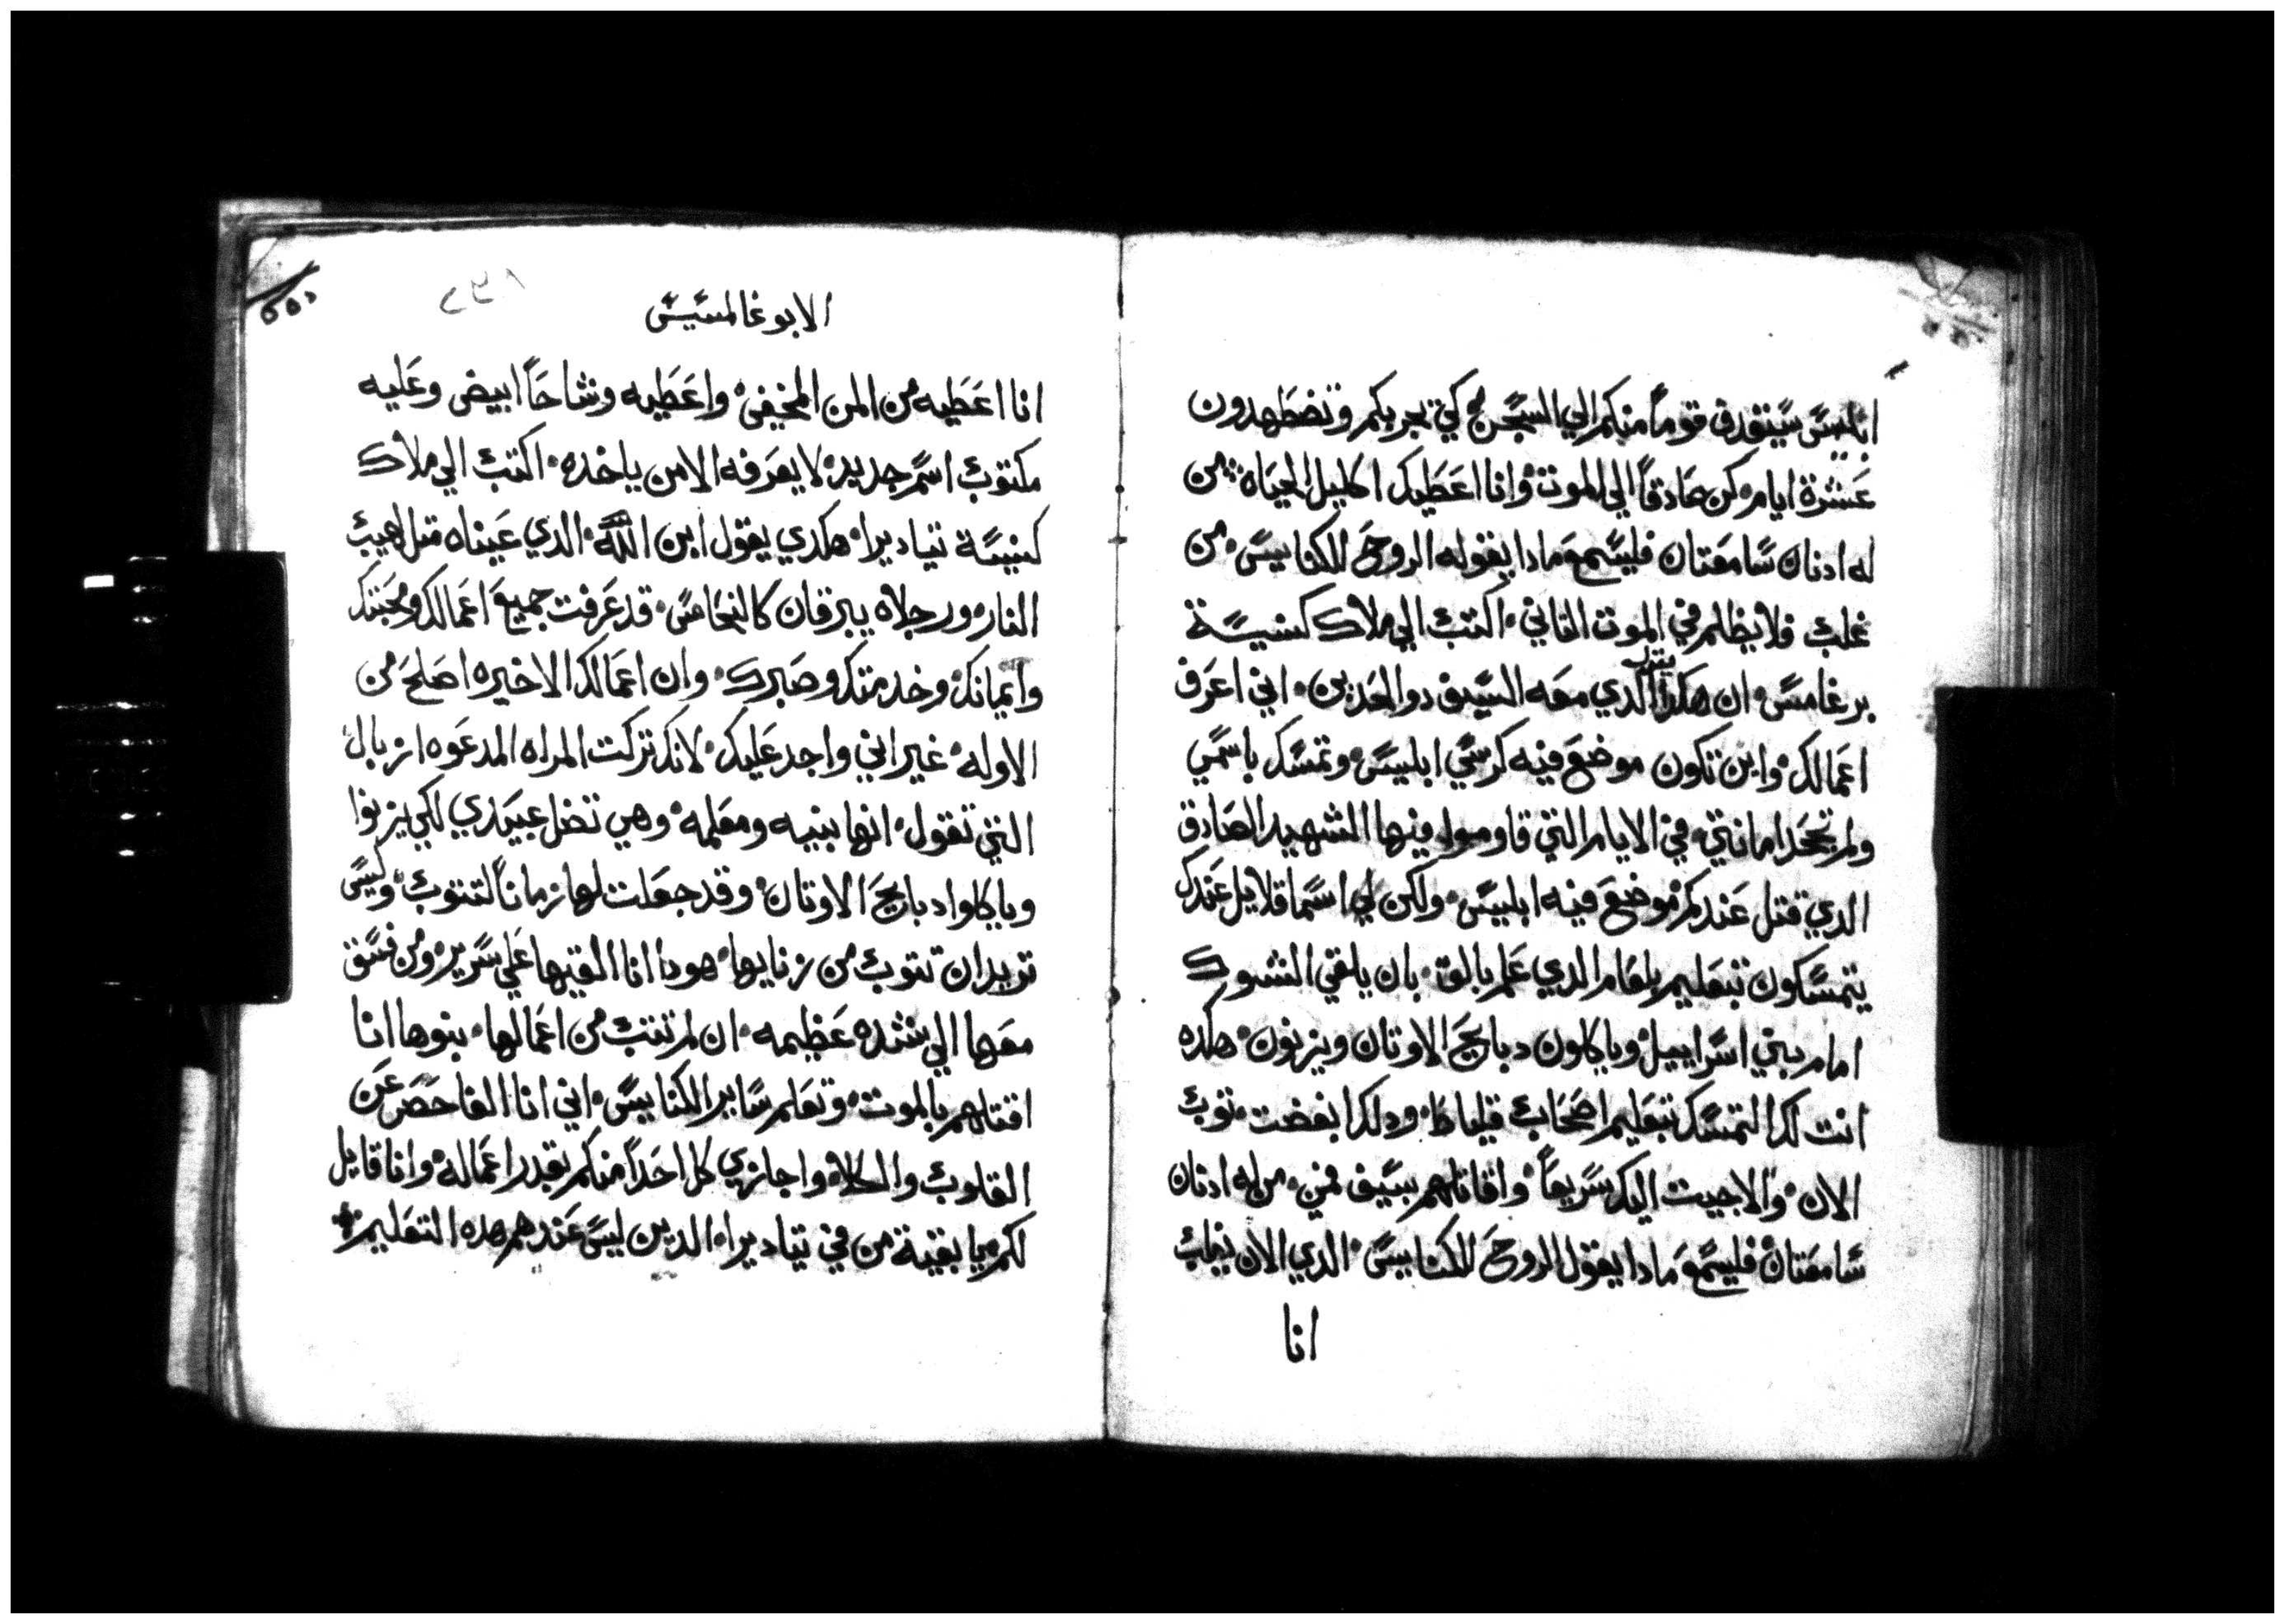 ابليس سيقدف قوماً منكم الي السجن كي تجربكم وتضطهدون
عشرة ايام كن صادقاً الي الموت وانا اعطيك اكليل الحياه من
له ادنان سامعتان فليسمع مادا يقوله الروح للكنايس من
غلب فلا يظلم في الموت التاني اكتب الي ملاك كنيسة
برغامس ان هكدا يقول الدي معه السيف دو الحدين اني اعرف
اعمالك واين تكون موضع فيه كرسي ابليس وتمسك باسمي
ولم تجحد امانتي في الايام التي قاومو فيها الشهيد الصادق
الدي قتل عندكم موضع فيه ابليس ولكن لي اسما قلايل عندك
يتمسكون بتعليم بلعام الدي علم بالق بان يلقي الشوك
امام بني اسراييل وياكلون دبايح الاوتان ويزنون هكده
انت لك التمسك بتعليم اصحاب قلياط ودلك ابغضت توب
الان والا جيت اليك سريعاً واقاتلهم بسيف فمي من له ادنان
سامعتان فليسمع مادا يقول الروح للكنايس الدي الان يغلب
انا
الابوغالمسيس
انا اعطيه من المن المخفي واعطيه وشاحاً ابيض وعليه
مكتوب اسم جديد لا يعرفه الا من ياخده اكتب الي ملاك
كنيسة تياديرا هكدي يقول ابن الله الدي عيناه متل لهيب
النار ورجلاه يبرقان كالنحاس قد عرفت جميع اعمالك ومحبتك
وايمانك وخدمتك وصبرك وان اعمالك الاخيره اصلح من
الاوله غير اني واجد عليك لانك تركت المراه المدعوه ازبال
التي تقول انها نبيه ومعلمه وهي تضل عبيدي لكي يزنوا
وياكلوا دبايح الاوتان وقد جعلت لها زماناً لتتوب وليس
تريد ان تتوب من زنايها هودا انا القيها علي سرير ومن فسق
معها الي شده عظيمه ان لم تتب من اعمالها بنوها انا
اقتلهم بالموت وتعلم ساير الكنايس اني انا الفاحص عن
القلوب والكلاه واجازي كل احداً منكم بقدر اعماله وانا قايل
لكم يا بقية من في تياديرا الدين ليس عندهم هده التعليم